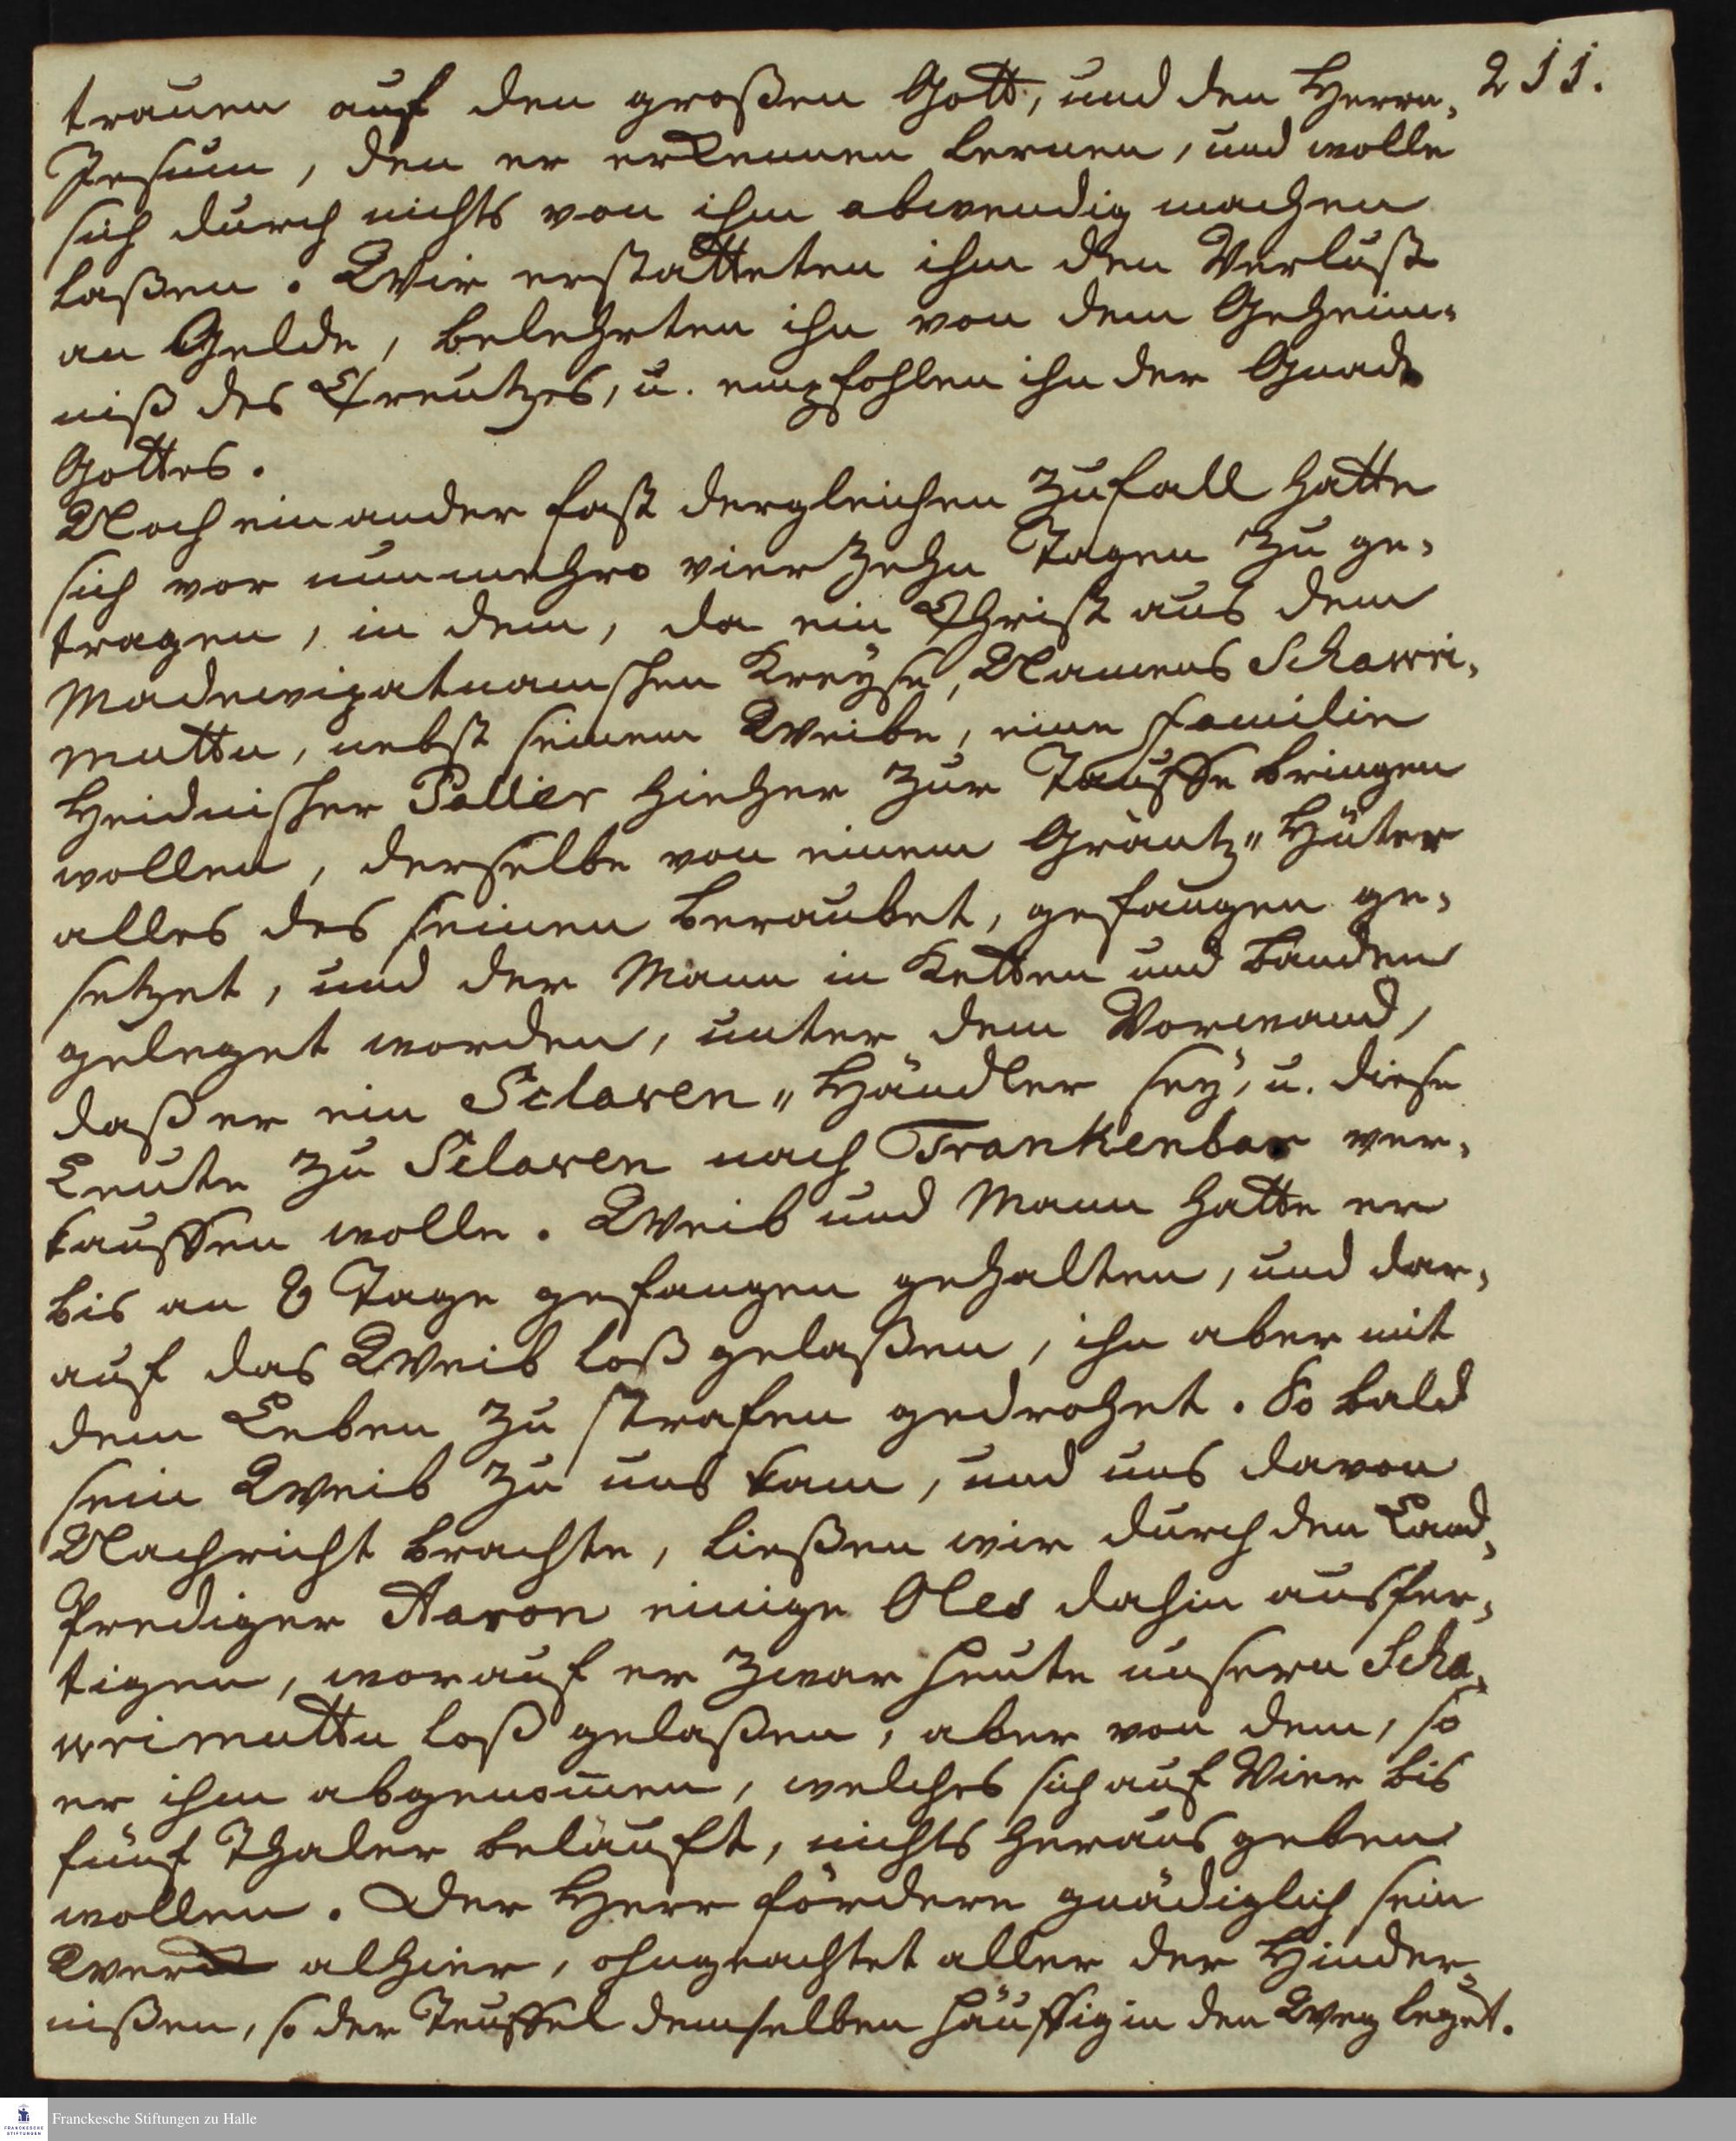 211.
trauen auf den großen Gott, und den Herrn,
Jesum, den er erkennen lernen, und wolle
sich durch nichts von ihm abwendig machen
laßen. Wir erstatteten ihm den Verlust
an Gelde, belehrten ihn von dem Geheim-
niß des Creutzes, u. empfohlen ihn der Gnade
Gottes.
Noch ein ander fast dergleichen Zufall hatte
sich vor nunmehro vierzehn Tagen zu ge-
tragen, in dem, da ein Christ aus dem
Madewipatnamschen Kreyse, Namens Schawri-
muttu, nebst seinem Weibe, eine Familie
Heidnischer Paller hieher zur Tauffe bringen
wollen, derselbe von einem Gräntz-Hüter
alles des seinen beraubet, gefangen ge-
setzet, und der Mann in Ketten und Banden
geleget worden, unter dem Vorwand,
daß er ein Sclaven-Händler sey, u. diese
Leute zu Sclaven nach Trankenbar ver-
kauffen wolle. Weib und Mann hatte er
bis an 8 Tage gefangen gehalten, und dar-
auf das Weib loß gelaßen, ihn aber mit
dem Leben zu strafen gedrohet. So bald
sein Weib zu uns kam, und uns davon
Nachricht brachte, ließen wir durch den Land-
Prediger Aaron einige Oles dahin ausfer-
tigen, worauf er zwar heute unsern Scha-
wrimuttu loß gelaßen, aber von dem, so
er ihm abgenom̅en, welches sich auf Vier bis
fünf Thaler beläuft, nichts heraus geben
wollen. Der Herr fördere gnädiglich sein
Werck alhier, ohngeachtet aller der Hinder-
nißen, so der Teuffel demselben häuffig in den Weg leget.
Franckesche Stiftungen zu Halle
FRANCKESCHE
STIFTUNGEN